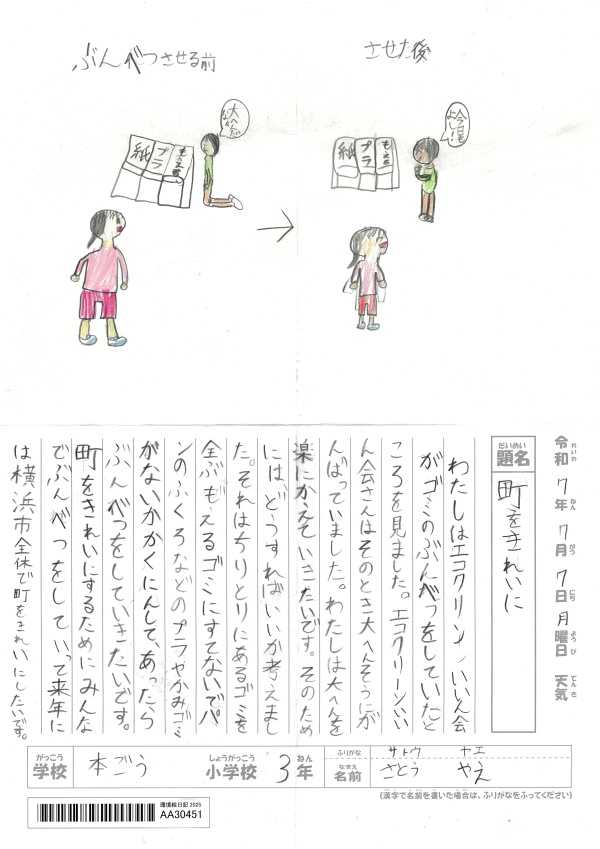 ぶんべつさせる前
させた後
大へんだな
今日もよし!
紙
プラ
もえる
紙
プラ
もえる
令和7年7月7日月曜日 天気
れいわ ねん がつ にち ようび てんき
だいめい
題名
町をきれいに
わたしはエコクリーンいいん会
がゴミのぶんべつをしていたと
ころを見ました。エコクリーンいい
ん会さんはそのとき大へんそうにが
んばっていました。わたしは大へんを
楽にかえていきたいです。そのため
には、どうすればいいか考えまし
た。それはちりとりにあるゴミを
全ぶもえるゴミにすてないでパ
ンのふくろなどのプラやかみゴミ
がないかかくにんして、あったら
ぶんべつをしていきたいです。
町をきれいにするためにみんな
でぶんべつをしていって来年に
は横浜市全体で町をきれいにしたいです。
がっこう
学校
本ごう
しょうがっこう
小学校
3年
ねん
ふりがな
サトウ ヤエ
なまえ
名前
さとう やえ
(漢字で名前を書いた場合は、ふりがなをふってください)
環境絵日記 2025
AA30451